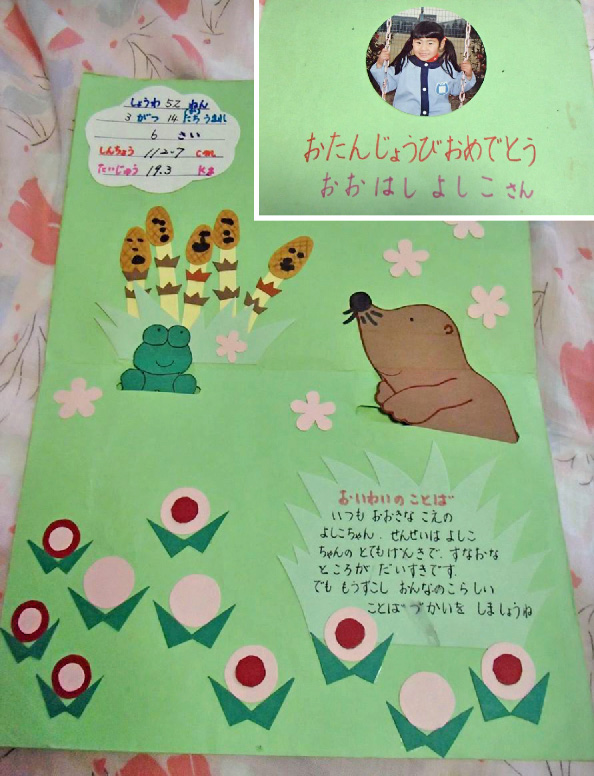 おたんじょうびおめでとう
おおはし よしこ さん
しょうわ 52 ねん
3 がつ 14 にち うまれ
6 さい
しんちょう 112.7 cm
たいじゅう 19.3 kg
おいわいのことば
いつも おおきな こえの
よしこちゃん。せんせいは よしこ
ちゃんの とてもげんきで、すなおな
ところが だいすきです。
でも もうすこし おんなのこらしい
ことば づかいを しましょうね